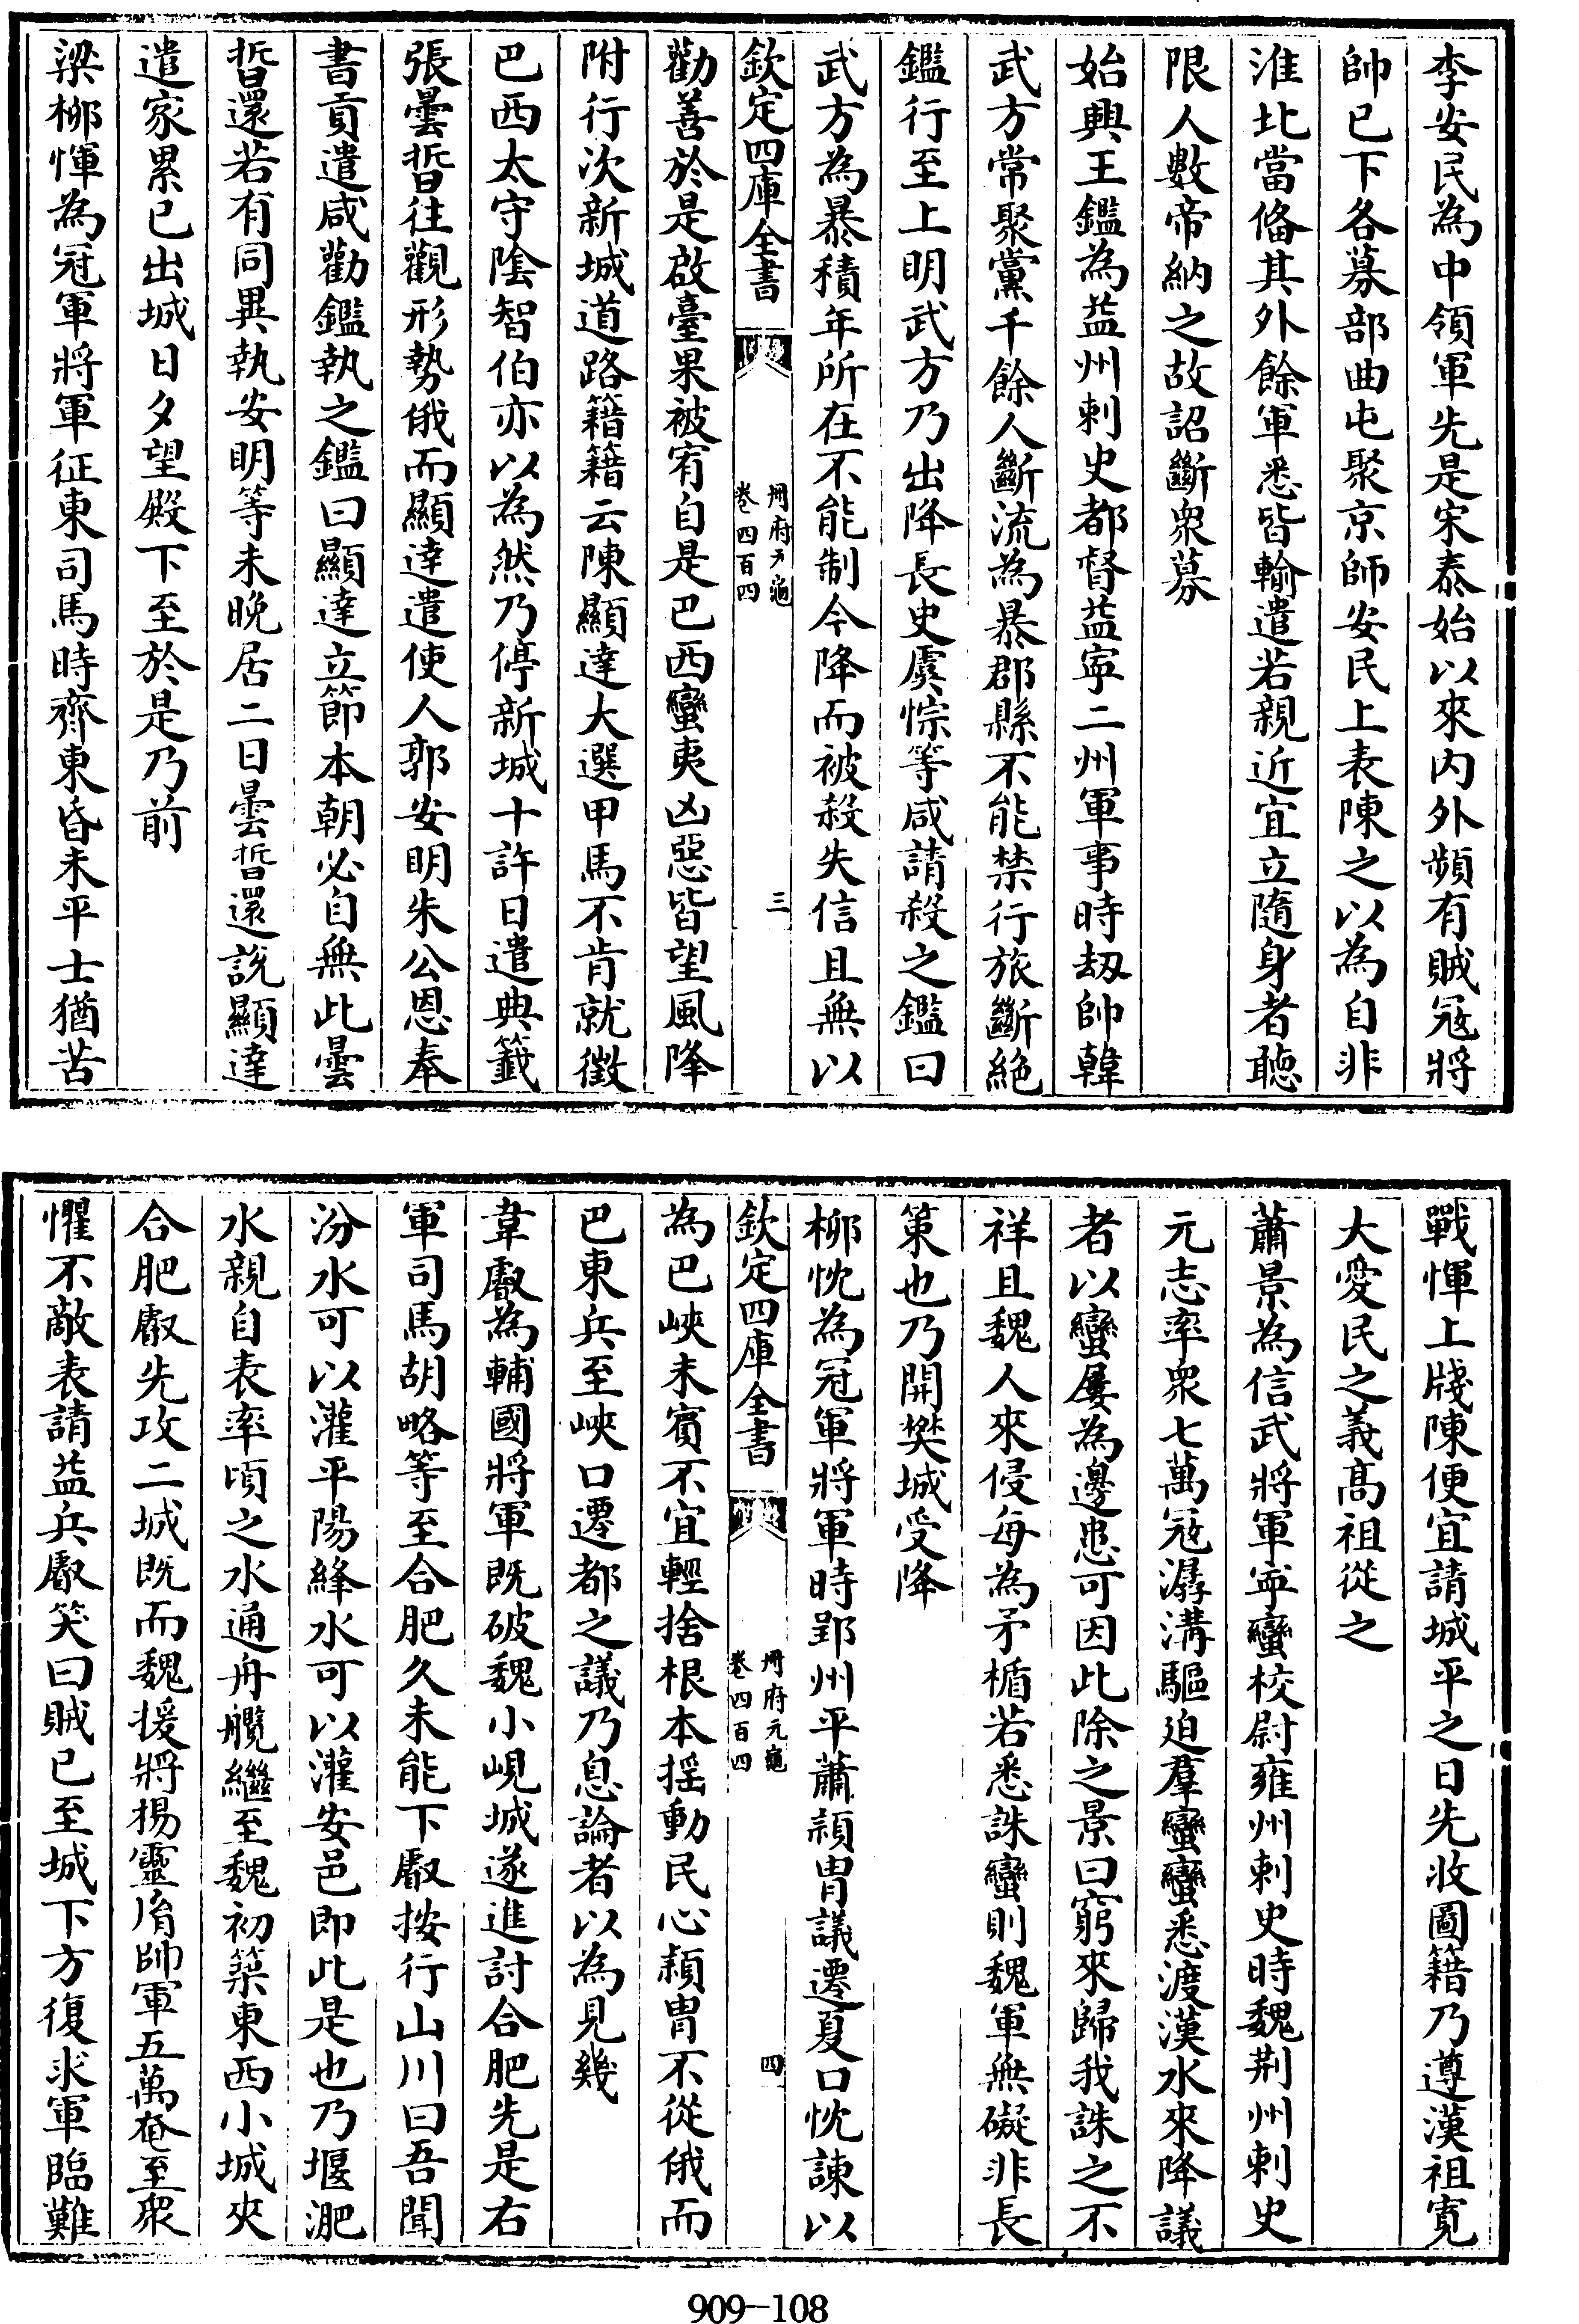 李安民為中領軍先是宋泰始以來内外頻有賊寇將
帥已下各募部曲屯聚京師安民上表陳之以為自非
淮北當俻其外餘軍悉皆輸遣若親近宜立隨身者聽
限人數帝納之故詔斷衆募
始興王鑑為益州刺史都督益寜二州軍事時刼帥韓
武方常聚黨千餘人斷流為暴郡縣不能禁行旅斷絶
鑑行至上明武方乃出降長史虞悰等咸請殺之鑑曰
武方為暴積年所在不能制今降而被殺失信且無以
欽定四庫全書
册府元龜
卷四百四
三
勸善於是啟臺果被宥自是巴西蠻夷凶惡皆望風降
附行次新城道路籍籍云陳顯達大選甲馬不肯就徵
巴西太守陰智伯亦以為然乃停新城十許日遣典籤
張曇晢往觀形勢俄而顯達遣使人郭安明朱公恩奉
書貢遣咸勸鑑執之鑑曰顯達立節本朝必自無此曇
晢還若有同異執安明等未晚居二日曇晢還説顯達
遣家累已出城日夕望殿下至於是乃前
梁柳惲為冠軍將軍征東司馬時齊東昏未平士猶苦
戰惲上牋陳便宜請城平之日先收圖籍乃遵漢祖寛
大愛民之義高祖從之
蕭景為信武將軍寜蠻校尉雍州刺史時魏荆州刺史
元志率衆七萬寇潺溝驅迫羣蠻蠻悉渡漢水來降議
者以蠻屢為邊患可因此除之景曰窮來歸我誅之不
祥且魏人來侵每為矛楯若悉誅蠻則魏軍無礙非長
策也乃開樊城受降
柳忱為冠軍將軍時郢州平蕭頴胄議遷夏口忱諫以
欽定四庫全書
册府元龜
卷四百四
四
為巴峽未賓不宜輕捨根本揺動民心頴胄不從俄而
巴東兵至峽口遷都之議乃息論者以為見幾
韋叡為輔國將軍既破魏小峴城遂進討合肥先是右
軍司馬胡略等至合肥久未能下叡按行山川曰吾聞
汾水可以灌平陽絳水可以灌安邑即此是也乃堰淝
水親自表率頃之水通舟艦繼至魏初築東西小城夾
合肥叡先攻二城既而魏援將楊靈𦙍帥軍五萬奄至衆
懼不敵表請益兵叡笑曰賊已至城下方復求軍臨難
909-108